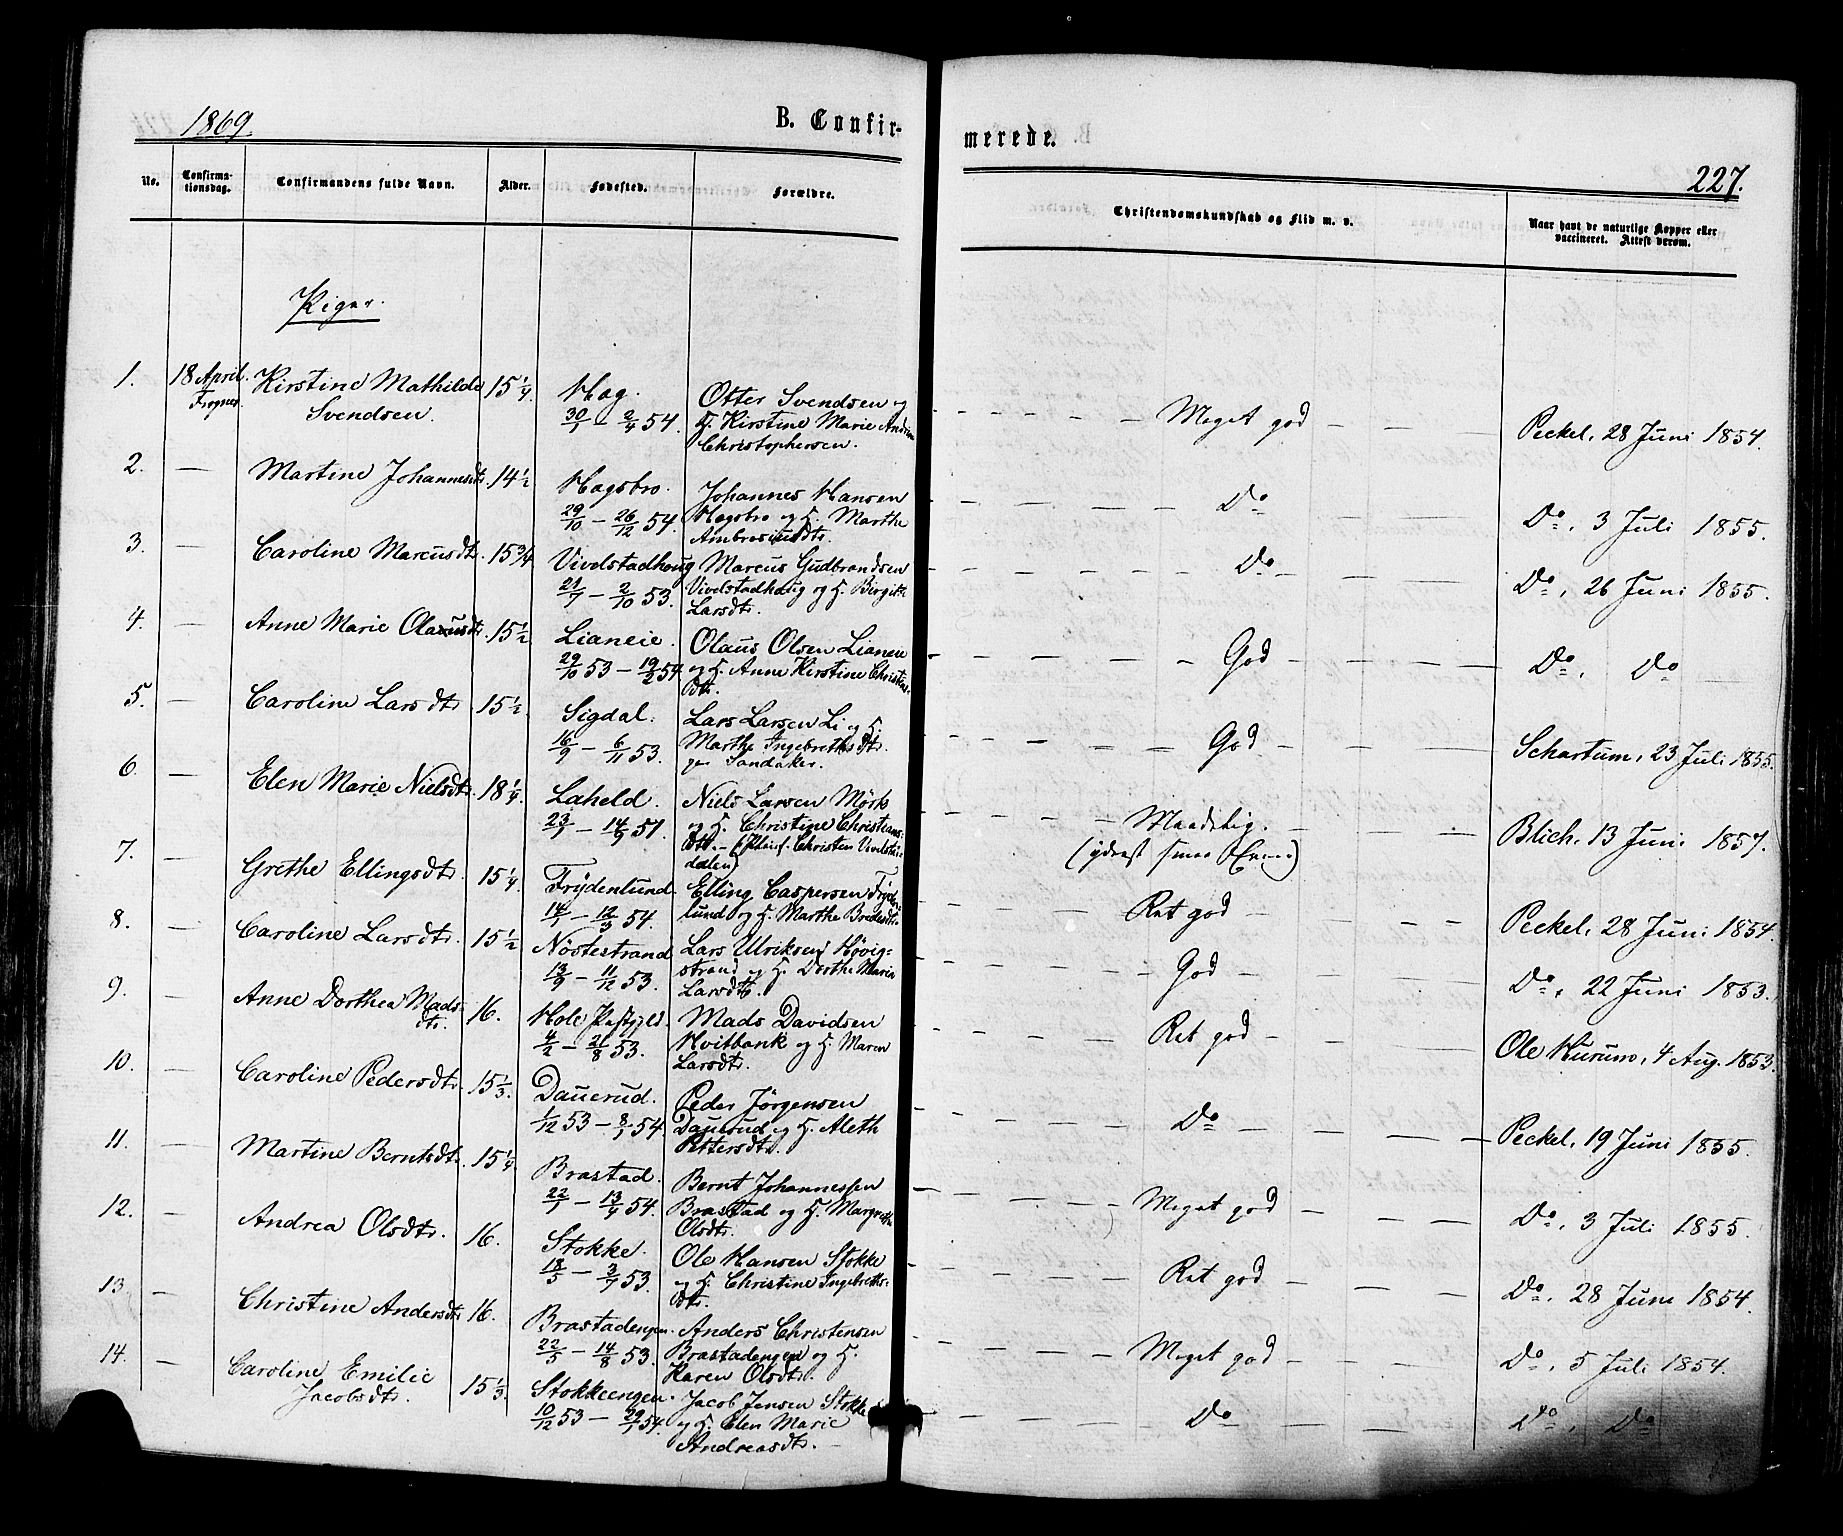 1869.
B. Confir-
merede.
227.
No.
Confirma-
tionsdag.
Confirmandens fulde Navn.
Alder.
Fødested.
Forældre.
Christendomskundskab og Flid m. v.
Naar havt de naturlige Kopper eller
vaccineret. Attest derom.
Piger.
1. 18 April. Kirstine Mathilde 15 1/4 Hag. Otter Svendsen og
Frogner. Svendsen. 30/1 – 2/4 54. H. Kirstine Marie
Christophersen.
Meget god — Peckel, 28 Juni 1854.
2. — Martine Johannesdtr. 14 1/2 Hagsbro. Johannes Hansen
29/10 – 26/12 54. Hagsbro og H. Marthe
Ambrosiusdtr.
Do — Do, 3 Juli 1855.
3. — Caroline Marcusdtr. 15 3/4 Vivelstadhaug Marcus Gudbrandsen
21/7 – 2/10 53. Vivelstadhaug og H. Birgitte
Larsdtr.
Do — Do, 26 Juni 1855.
4. — Anne Marie Olausdtr. 15 1/2 Lianeie. Olaus Olsen Lianeie
29/10 53 – 19/2 54 og H. Anne Kirstine Christens-
dtr.
God — Do, Do —
5. — Caroline Larsdtr. 15 1/2 Sigdal. Lars Larsen Li og H.
16/9 – 6/11 53. Marthe Ingebrethsdtr.
Sandaker.
God — Schartum, 23 Juli 1855.
6. — Elen Marie Nielsdtr. 18 1/4 Laheld. Niels Larsen Mörk
23/1 – 14/9 51. og H. Christine Christians-
dtr. – (Pleief. Christen Vivelstad-
dalen)
Maadelig.
(yderst smaa Evner)
Blich, 13 Juni 1857.
7. — Grethe Ellingsdtr. 15 1/4 Frydenlund. Elling Caspersen Fryden-
14/1 – 12/3 54. lund og H. Marthe Bredesdtr.
Ret god — Peckel, 28 Juni 1854.
8. — Caroline Larsdtr. 15 1/2 Nöstestrand Lars Ulriksen Høvig-
13/9 – 11/12 53. strand og H. Dorthe Marie
Larsdtr.
God — Do, 22 Juni 1853.
9. — Anne Dorthea Mads- 16. Hole Præstgjeld. Mads Davidsen
dtr. 4/2 – 21/8 53. Hvitbank og H. Maren
Larsdtr.
Ret god — Ole Hurum, 4 Aug. 1853.
10. — Caroline Pedersdtr. 15 1/3. Dauerud. Peder Jörgensen
1/12 53 – 8/1 54. Dauerud og H. Aleth
Pettersdtr.
Do — Peckel, 19 Juni 1855.
11. — Martine Berntsdtr. 15 1/4 Brastad. Bernt Johannessen
22/1 – 13/4 54. Brastad og H. Margrethe
Olsdtr.
Meget god — Do, 3 Juli 1855.
12. — Andrea Olsdtr. 16. Stokke. Ole Hansen Stokke
18/5 – 3/7 53. og H. Christine Ingebreths-
dtr.
Ret god — Do, 28 Juni 1854.
13. — Christine Andersdtr. 16. Brastadengen. Anders Christensen
22/5 – 14/8 53. Brastadengen og H.
Karen Olsdtr.
Meget god — Do, 5 Juli 1854.
14. — Caroline Emilie 15 1/3. Stokkeengen. Jacob Jensen Stokke
Jacobsdtr. 10/12 53 – 29/1 54. og H. Elen Marie
Andreasdtr. —
Do — Do, Do